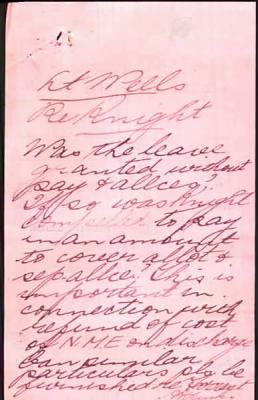 Lt Wells
Re Knight
Was the leave
granted without
pay & allces?
If so was Knight
compelled to pay
in an amount
to cover allot &
sep allce. This is
important in
connection with
refund of cost
of NME on discharge
Can similar
particulars pls be
furnished re